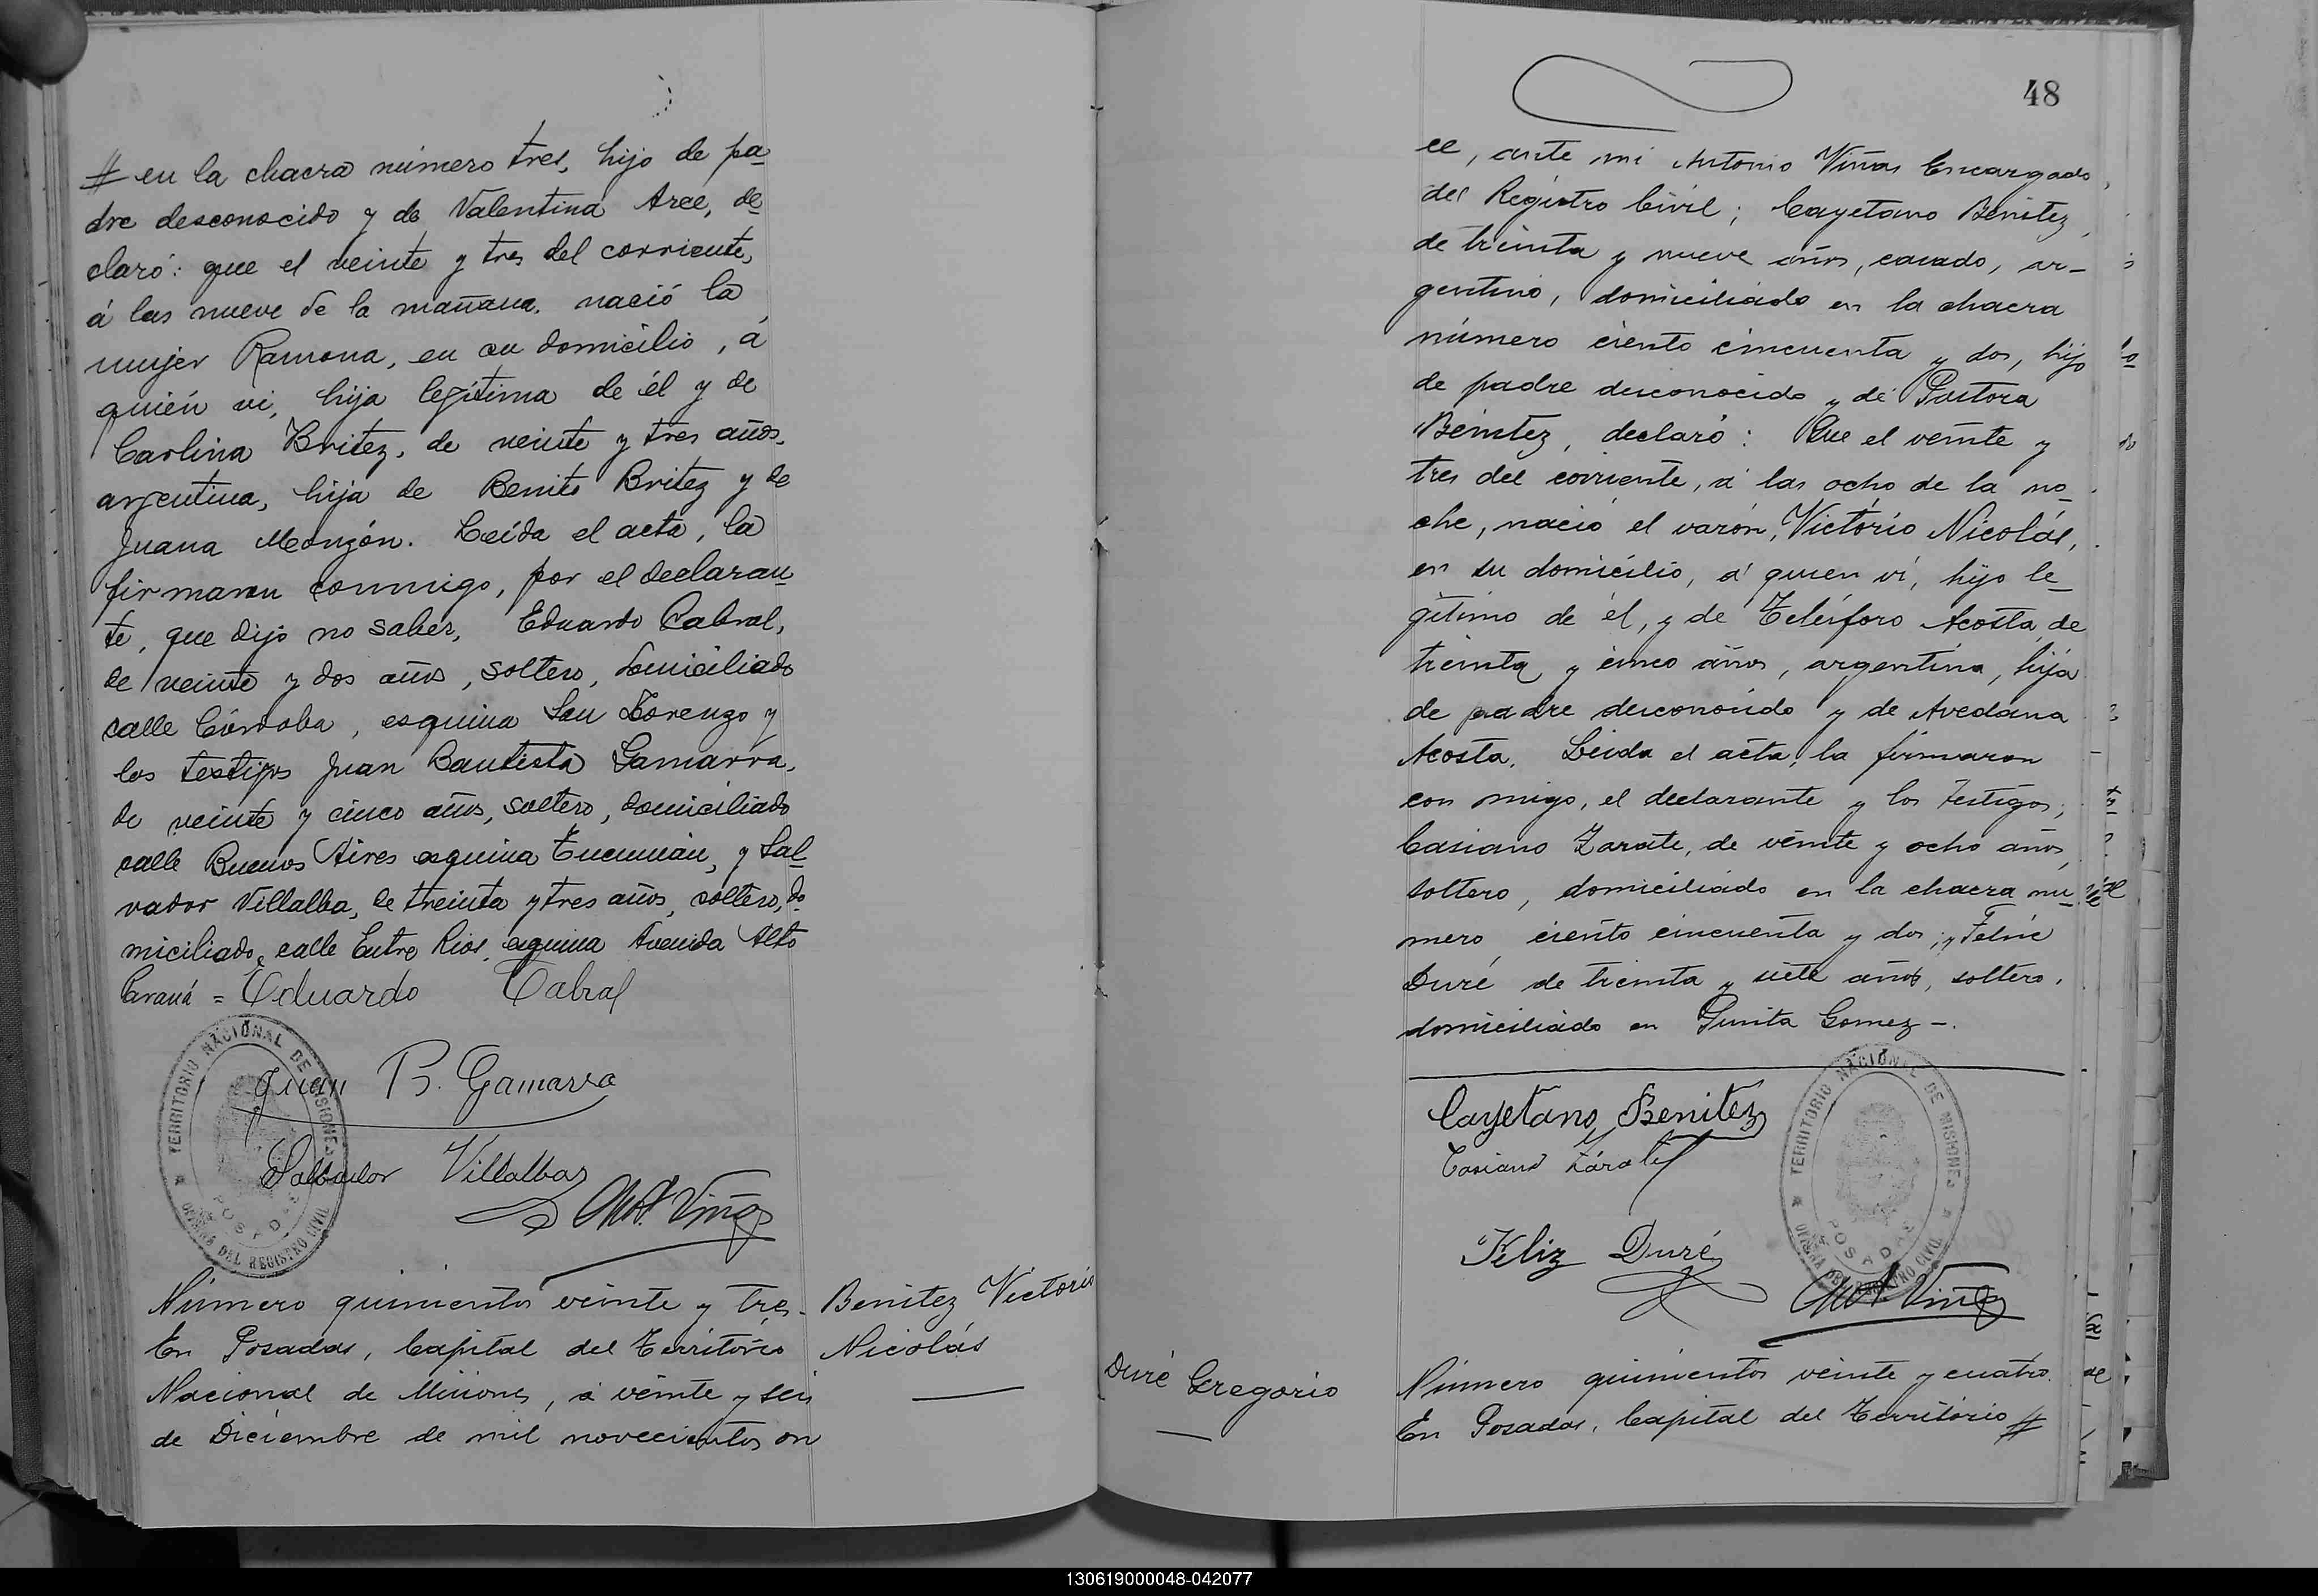 # en la chacra número tres, hijo de pa-
dre desconocido y de Valentina Arce, de-
claró: que el veinte y tres del corriente,
á las nueve de la mañana, nació la
mujer Ramona, en su domicilio, á
quién vi, hija legítima de él y de
Carlina Britez, de veinte y tres años,
argentina, hija de Benito Britez y de
Juana Monzón. Leída el acta, la
firmaron conmigo, por el declaran-
te, que dijo no saber, Eduardo Cabral,
de veinte y dos años, soltero, domiciliado
calle Córdoba, esquina San Lorenzo y
los testigos Juan Bautista Gamarra,
de veinte y cinco años, soltero, domiciliado
calle Buenos Aires esquina Tucumán, y Sal-
vador Villalba, de treinta y tres años, soltero, do-
miciliado, calle Entre Rios, esquina Avenida Alto
Paraná = Eduardo Cabral
Juan B. Gamarra
Salbador Villalba
Ant. Viñas
TERRITORIO NACIONAL DE MISIONES
POSADAS
OFICINA DEL REGISTRO CIVIL
Número quinientos veinte y tres.
En Posadas, Capital del Territorio
Nacional de Misiones, á veinte y seis
de Diciembre de mil novecientos on
Benitez Victorio
Nicolás
48
ce, ante mi Antonio Viñas Encargado
del Registro Civil; Cayetano Benitez,
de treinta y nueve años, casado, ar-
gentino, domiciliado en la chacra
número ciento cincuenta y dos, hijo
de padre desconocido y de Pastora
Benitez, declaró: Que el veinte y
tres del corriente, á las ocho de la no-
che, nació el varón, Victorio Nicolás,
en su domicilio, á quien vi, hijo le-
gítimo de él, y de Telésforo Acosta, de
treinta y cinco años, argentina, hija
de padre desconocido y de Avedana
Acosta. Leida el acta, la firmaron
con migo, el declarante y los testigos,
Casiano Zarate, de veinte y ocho años,
soltero, domiciliado en la chacra nu-
mero ciento cincuenta y dos, y Felix
Duré de treinta y siete años, soltero,
domiciliado en Punta Gomez -.
Cayetano Benitez
Casiano Zárate
Feliz Duré
Ant. Viñas
TERRITORIO NACIONAL DE MISIONES
POSADAS
OFICINA DEL REGISTRO CIVIL
Duré Gregorio
Número quinientos veinte y cuatro.
En Posadas, Capital del Territorio #
130619000048-042077